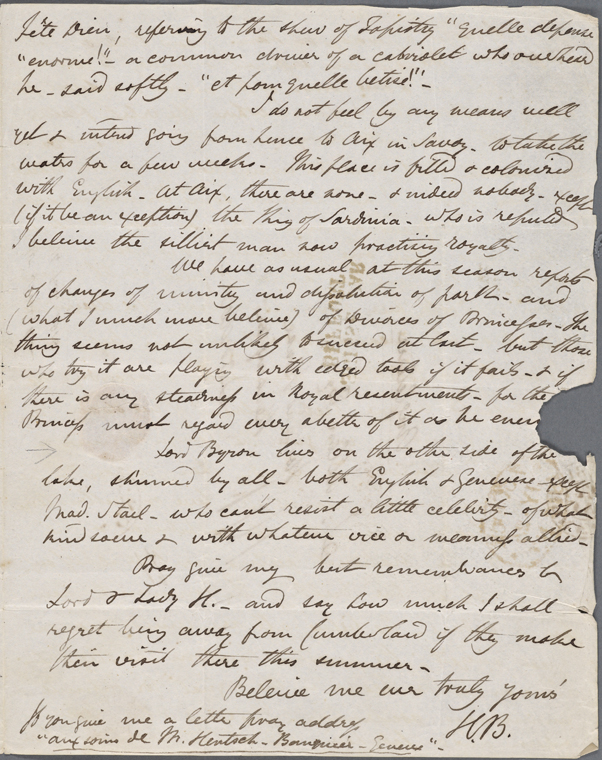 Fête Dieu, referring to the shew of Tapistry "Quelle depense
"enorme!" - a common driver of a cabriolet who overheard
he - said softly - "et pour quelle betise!" -
I do not feel by any means well
yet & intend going from hence to Aix in Savoy - to take the
waters for a few weeks - This place is filled & colonized
with English - At Aix, there are none - & indeed nobody - except
(if it be an exception) the King of Sardinia - who is reputed
I beleive the silliest man now practising royalty -
We have as usual at this season reports
of changes of ministry and dissolution of parlt - and
(what I much more beleive) of Divorces of Princesses - The
thing seems not unlikely to succeed at last - but those
who try it are playing with edged tools if it fails - & if
there is any steadiness in Royal resentments - for the
Princess must regard every abettor of it as her enem
Lord Byron lives on the other side of the
lake, shunned by all - both English & Genevese - except
Mad. Stael - who can't resist a little celebrity - of what
kind soever & with whatever vice or meanness allied -
Pray give my best remembrances to
Lord & Lady H. - and say how much I shall -
regret being away from Cumberland if they make
their visit there this summer -
Beleive me ever truly yours
H.B.
If you give me a letter pray address
"aux soins de M. Hentsch - Banquier - Geneve" -